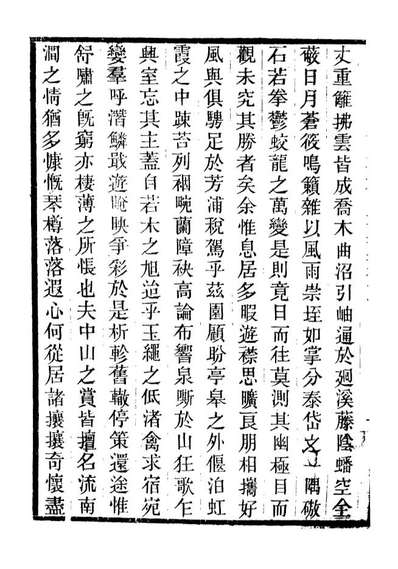 丈重籬拂雲皆成喬木曲沼引岫通於廻溪藤陰蟠空全
蔽日月蒼筱鳴籟雜以風雨崇垤如掌分泰岱之一隅磝
石若拳鬱蛟龍之萬變是則竟日而往莫測其幽極目而
觀未究其勝者矣余惟息居多暇遊襟思曠良朋相攜好
風與俱騁足於芳浦稅駕乎茲園顧盼亭皋之外偃泊虹
霞之中踈苔列裀畹蘭障袂高論布響泉嘶於山狂歌乍
興室忘其主蓋自若木之旭迨乎玉繩之低渚禽求宿宛
孌羣呼潛鱗戢遊晻映爭彩於是析軫舊轍停策還途惟
舒嘯之旣窮亦棲薄之所悵也夫中山之賞皆擅名流南
澗之情猶多慷慨琴樽落落遐心何從居諸攘攘奇懷盡